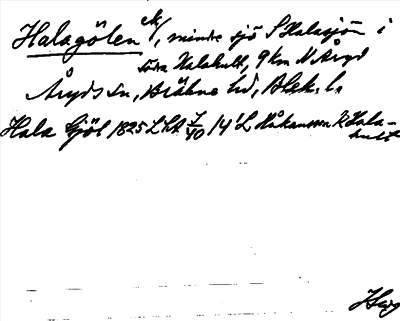 Halagölen ek/, mindre sjö S Halasjön i
södra Halahult, 9 km N Åryd
Åryds sn, Bräkne hd, Blek. l.
Hala Gjöl 1825 LSA 7/40 14 L Håkansson K Hala-
hult